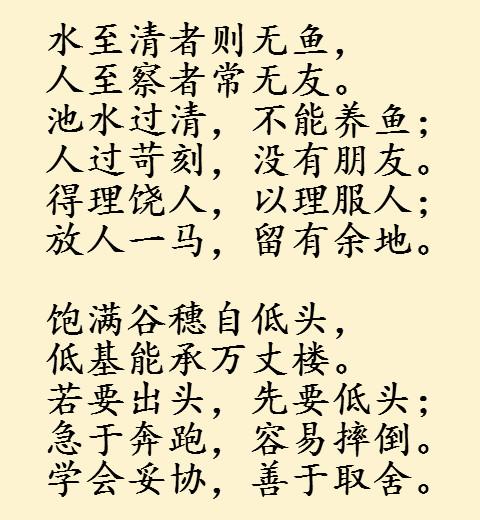 水至清者则无鱼，
人至察者常无友。
池水过清，不能养鱼；
人过苛刻，没有朋友。
得理饶人，以理服人；
放人一马，留有余地。
饱满谷穗自低头，
低基能承万丈楼。
若要出头，先要低头；
急于奔跑，容易摔倒。
学会妥协，善于取舍。